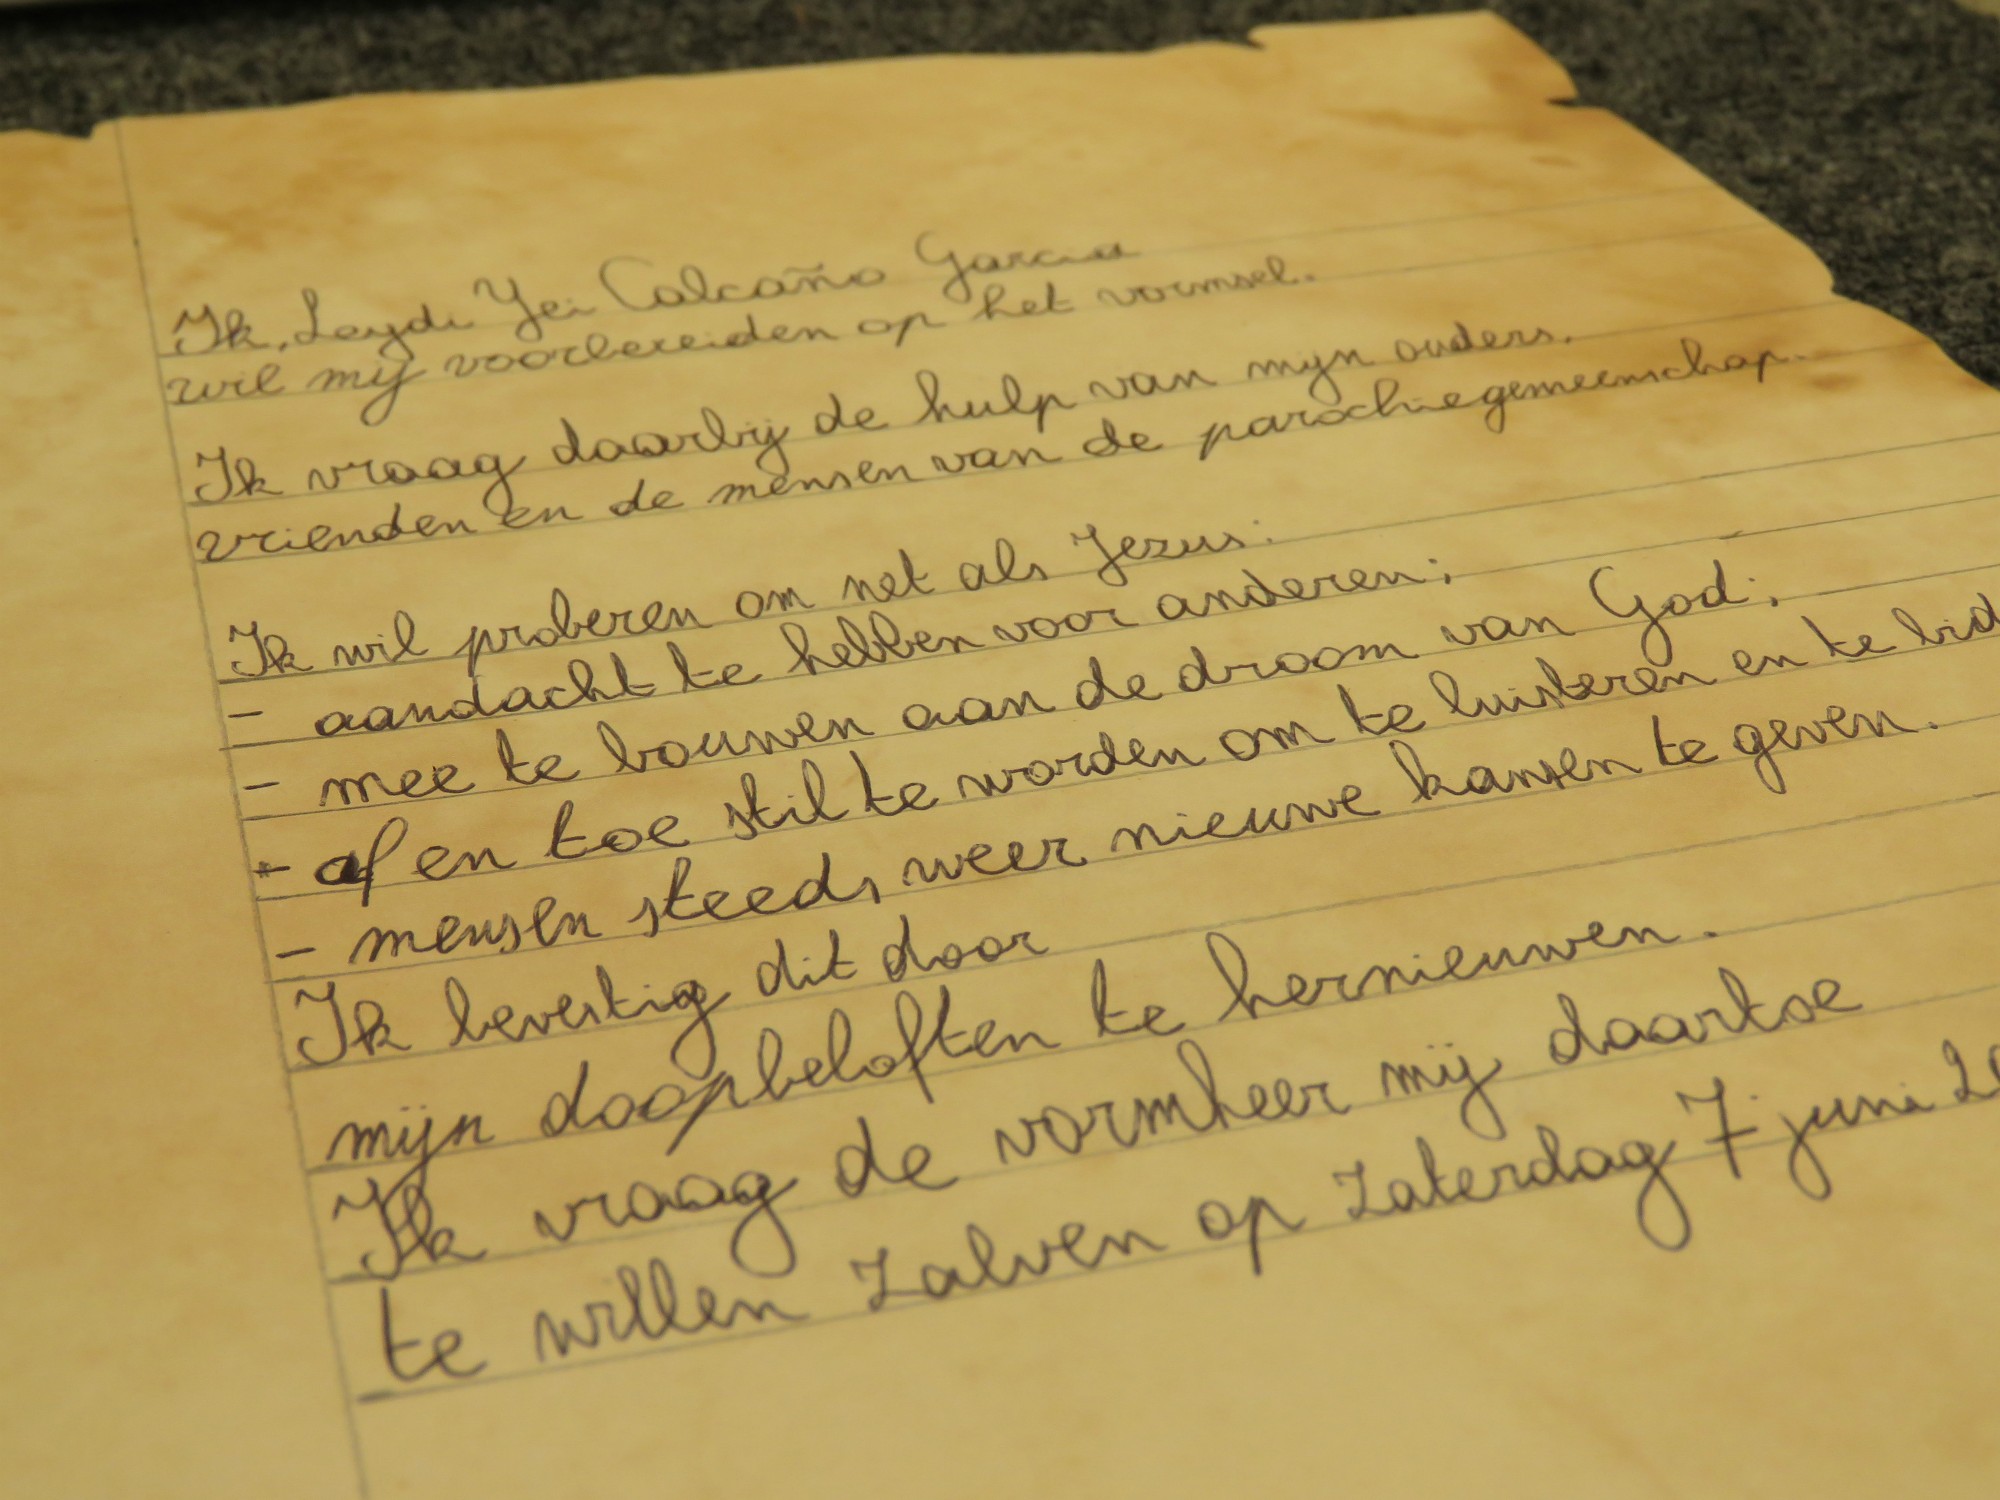 Ik, Leydi Yei Calcaño Garcia
wil mij voorbereiden op het vormsel.
Ik vraag daarbij de hulp van mijn ouders,
vrienden en de mensen van de parochiegemeenschap.
Ik wil proberen om net als Jezus:
- aandacht te hebben voor anderen;
- mee te bouwen aan de droom van God;
- af en toe stil te worden om te luisteren en te bid
- mensen steeds weer nieuwe kansen te geven.
Ik bevestig dit door
mijn doopbeloften te hernieuwen.
Ik vraag de vormheer mij daartoe
te willen zalven op zaterdag 7 juni 20